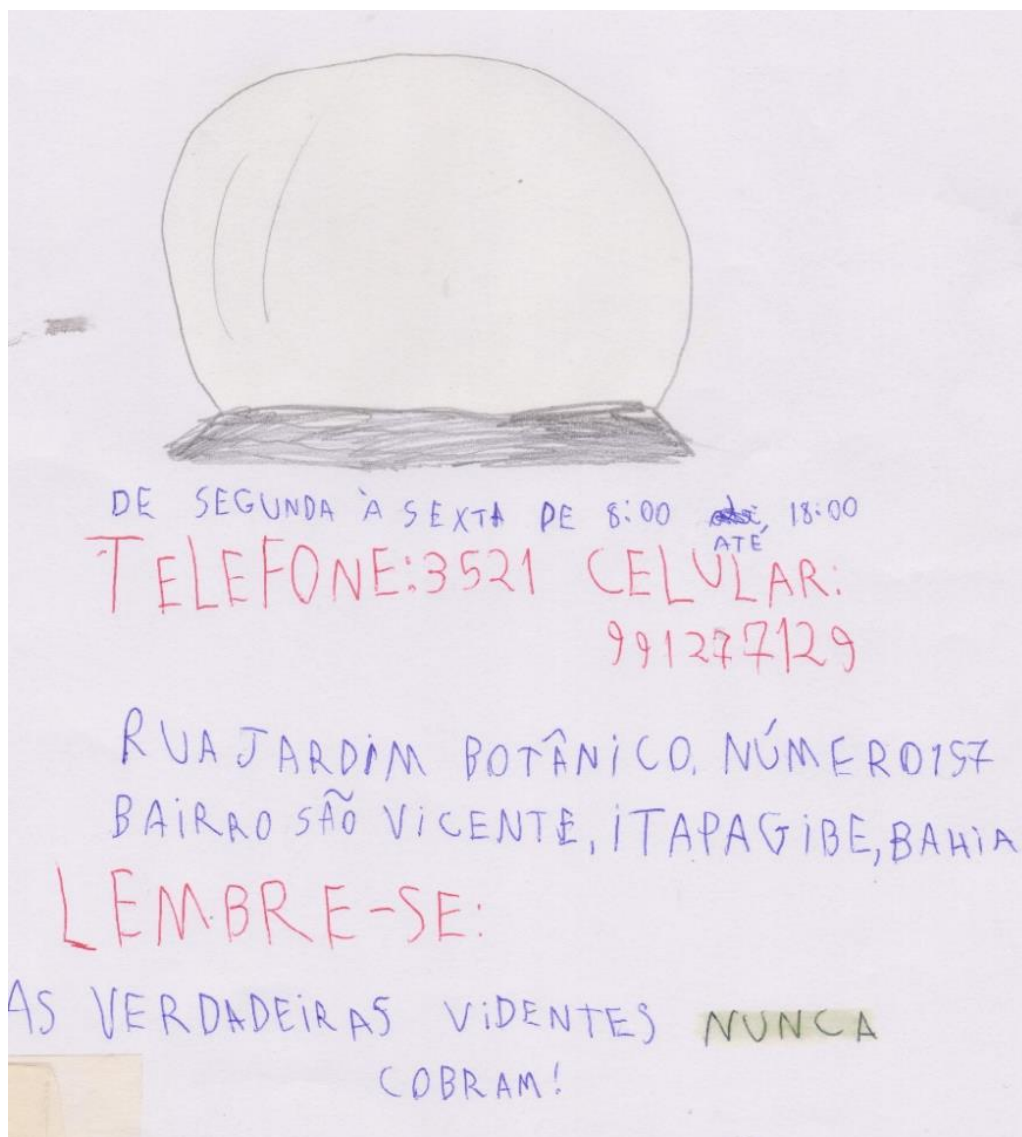 DE SEGUNDA À SEXTA DE 8:00 ATÉ 18:00
TELEFONE:3521 CELULAR:
991277129
RUA JARDIM BOTÂNICO, NÚMERO 157
BAIRRO SÃO VICENTE, ITAPAGIBE, BAHIA
LEMBRE-SE:
AS VERDADEIRAS VIDENTES NUNCA
COBRAM!